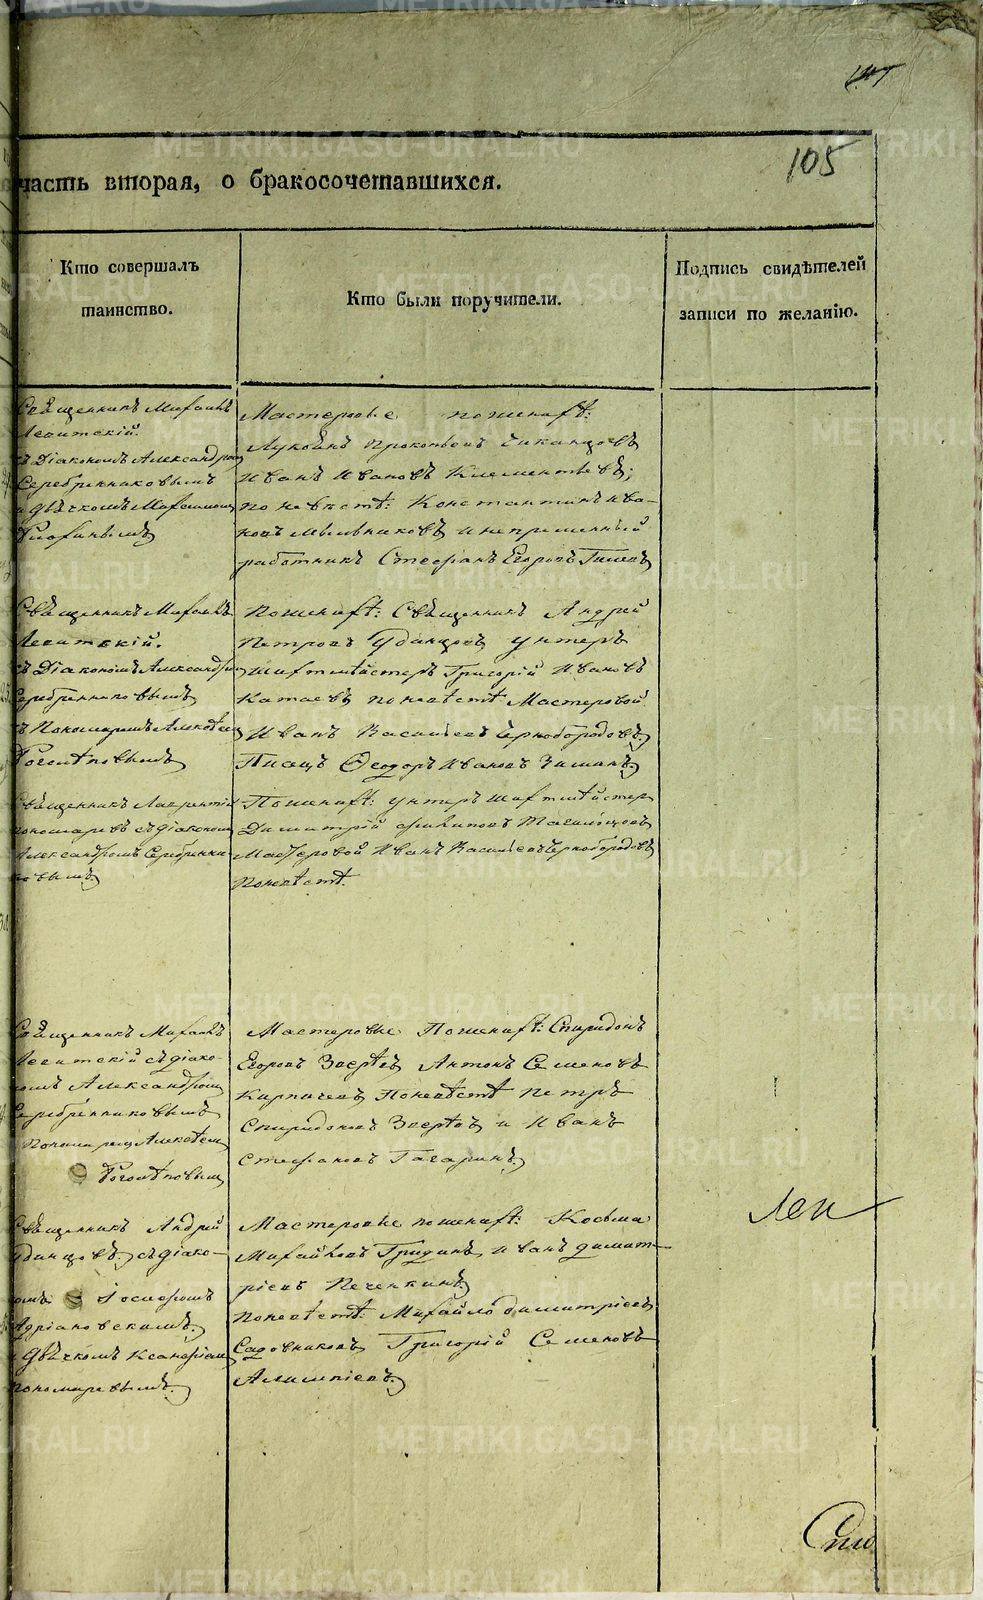 105
часть вторая, о бракосочетавшихся.
Кто совершалъ
таинство.
Кто были поручители.
Подпись свидѣтелей
записи по желанію.
Священникъ Михаилъ
Левитскій.
съ Діакономъ Александромъ
Серебренниковымъ
и Дьячкомъ
Мастеровые по женихѣ:
Прокопьевъ
Иванъ Ивановъ Клементьевъ;
по невѣстѣ: Константинъ Ива-
новъ Мыльниковъ и непременный
работникъ Стефанъ Егоровъ Гилевъ
Священникъ Михаилъ
Левитскій.
съ Діакономъ Александромъ
Серебренниковымъ
съ Пономаремъ Алексѣемъ
По женихѣ: Священникъ Андрей
Петровъ Удинцовъ унтеръ
шихтмейстеръ Григорій Ивановъ
Катаевъ по невѣстѣ Мастеровой
Иванъ Васильевъ Чернобородовъ
Писецъ Ѳеодоръ Ивановъ Зиминъ
Священникъ Лаврентій
Пономаревъ съ діакономъ
Александромъ Серебренни-
ковымъ
По женихѣ: унтеръ шихтмейстеръ
Димитрій Филиповъ
Мастеровой Иванъ Васильевъ Чернобородовъ
По невѣстѣ.
Священникъ Михаилъ
Левитскій съ діако-
номъ Александромъ
Серебренниковымъ
Пономаремъ Алексѣемъ
Мастеровые По женихѣ: Спиридонъ
Егоровъ Звѣревъ Антонъ Семеновъ
Карпачевъ По невѣстѣ Петръ
Спиридоновъ Звѣревъ и Иванъ
Стефановъ Гагаринъ
Священникъ Андрей
Удинцовъ съ діако-
номъ Іосифомъ
Адріановскимъ
и Дьячкомъ Ксенофонтомъ
Пономаревымъ
Мастеровые по женихѣ: Косьма
Михайловъ Гридинъ, Иванъ Димит-
ріевъ Печенкинъ
По невѣстѣ: Михайло Димитріевъ
Садовниковъ Григорій Семеновъ
Алимпіевъ